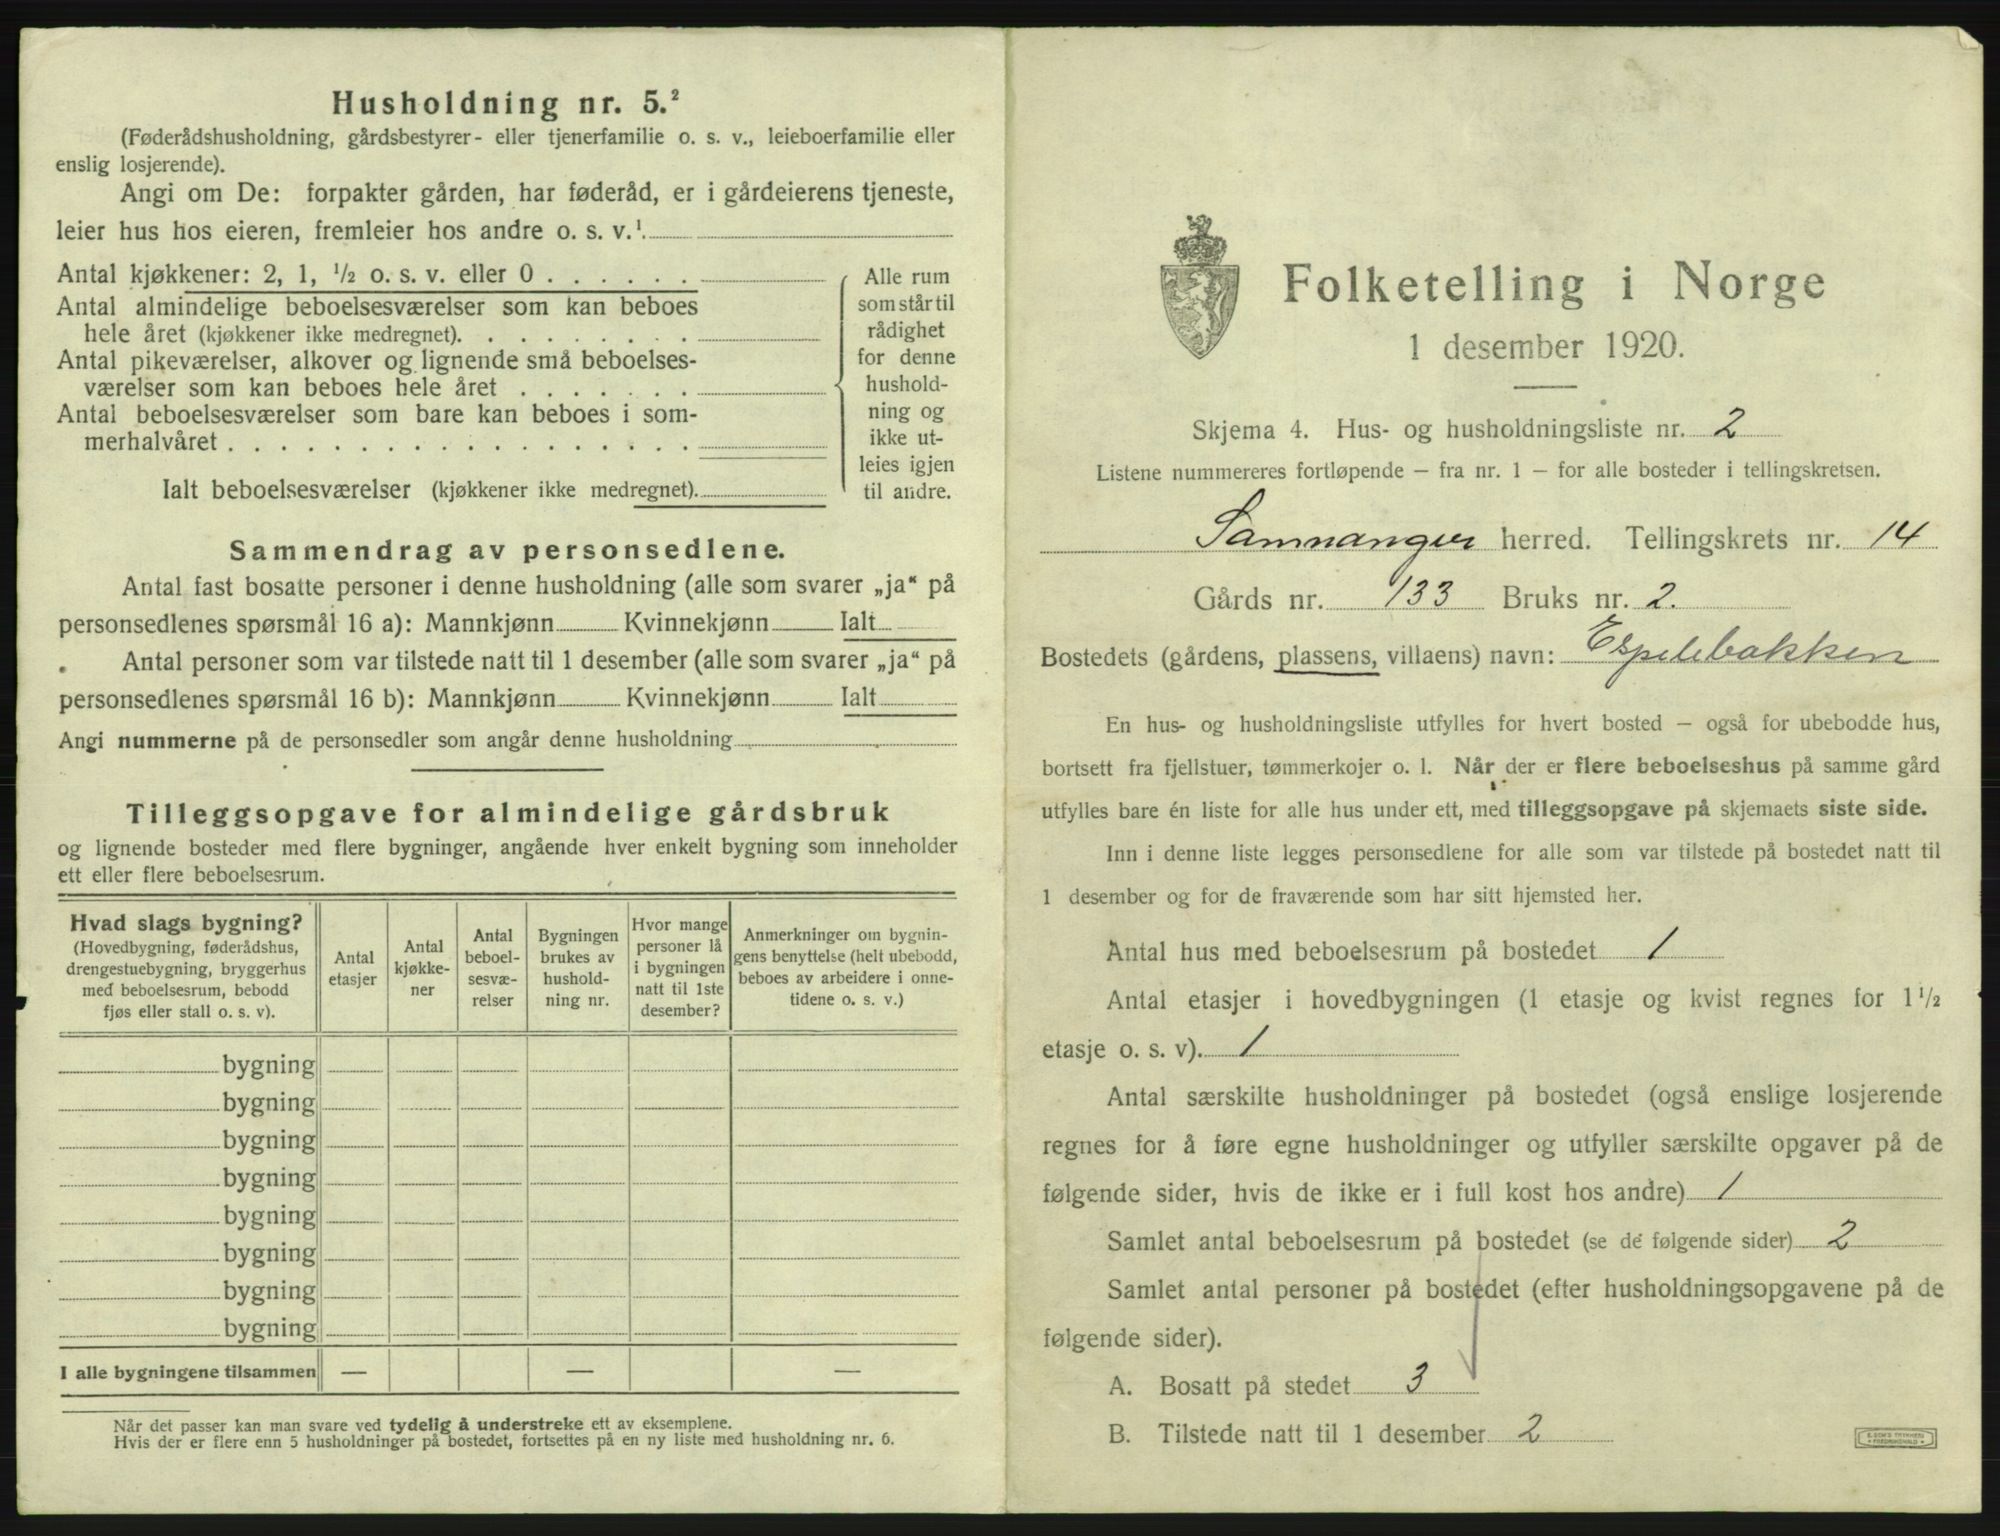 Husholdning nr. 5.²
(Føderådshusholdning, gårdsbestyrer- eller tjenerfamilie o. s. v., leieboerfamilie eller
enslig losjerende).
Angi om De: forpakter gården, har føderåd, er i gårdeierens tjeneste,
leier hus hos eieren, fremleier hos andre o. s. v.¹
Antal kjøkkener: 2, 1, ½ o. s. v. eller 0 . . . . . .
Antal almindelige beboelsesværelser som kan beboes
hele året (kjøkkener ikke medregnet). . . . . . . . .
Antal pikeværelser, alkover og lignende små beboelses-
værelser som kan beboes hele året . . . . . . .
Antal beboelsesværelser som bare kan beboes i som-
merhalvåret . . . . . . . . . . . . . . . . . .
Ialt beboelsesværelser (kjøkkener ikke medregnet).
Alle rum
som står til
rådighet
for denne
hushold-
ning og
ikke ut-
leies igjen
til andre.
Sammendrag av personsedlene.
Antal fast bosatte personer i denne husholdning (alle som svarer „ja“ på
personsedlenes spørsmål 16 a): Mannkjønn Kvinnekjønn Ialt
Antal personer som var tilstede natt til 1 desember (alle som svarer „ja“ på
personsedlenes spørsmål 16 b): Mannkjønn Kvinnekjønn Ialt
Angi nummerne på de personsedler som angår denne husholdning
Tilleggsopgave for almindelige gårdsbruk
og lignende bosteder med flere bygninger, angående hver enkelt bygning som inneholder
ett eller flere beboelsesrum.
Hvad slags bygning?
(Hovedbygning, føderådshus,
drengestuebygning, bryggerhus
med beboelsesrum, bebodd
fjøs eller stall o. s. v).
Antal
etasjer
Antal
kjøkke-
ner
Antal
beboel-
sesvæ-
relser
Bygningen
brukes av
hushold-
ning nr.
Hvor mange
personer lå
i bygningen
natt til 1ste
desember?
Anmerkninger om bygnin-
gens benyttelse (helt ubebodd,
beboes av arbeidere i onne-
tidene o. s. v.)
bygning
bygning
bygning
bygning
bygning
bygning
bygning
bygning
I alle bygningene tilsammen — — —
Når det passer kan man svare ved tydelig å understreke ett av eksemplene.
Hvis der er flere enn 5 husholdninger på bostedet, fortsettes på en ny liste med husholdning nr. 6.
Folketelling i Norge
1 desember 1920.
Skjema 4. Hus- og husholdningsliste nr. 2
Listene nummereres fortløpende – fra nr. 1 – for alle bosteder i tellingskretsen.
Samnanger herred. Tellingskrets nr. 14
Gårds nr. 133 Bruks nr. 2.
Bostedets (gårdens, plassens, villaens) navn: Espelebakken
En hus- og husholdningsliste utfylles for hvert bosted – også for ubebodde hus,
bortsett fra fjellstuer, tømmerkojer o. l. Når der er flere beboelseshus på samme gård
utfylles bare én liste for alle hus under ett, med tilleggsopgave på skjemaets siste side.
Inn i denne liste legges personsedlene for alle som var tilstede på bostedet natt til
1 desember og for de fraværende som har sitt hjemsted her.
Antal hus med beboelsesrum på bostedet 1
Antal etasjer i hovedbygningen (1 etasje og kvist regnes for 1½
etasje o. s. v). 1
Antal særskilte husholdninger på bostedet (også enslige losjerende
regnes for å føre egne husholdninger og utfyller særskilte opgaver på de
følgende sider, hvis de ikke er i full kost hos andre) 1
Samlet antal beboelsesrum på bostedet (se de følgende sider) 2
Samlet antal personer på bostedet (efter husholdningsopgavene på de
følgende sider).
A. Bosatt på stedet 3
B. Tilstede natt til 1 desember 2